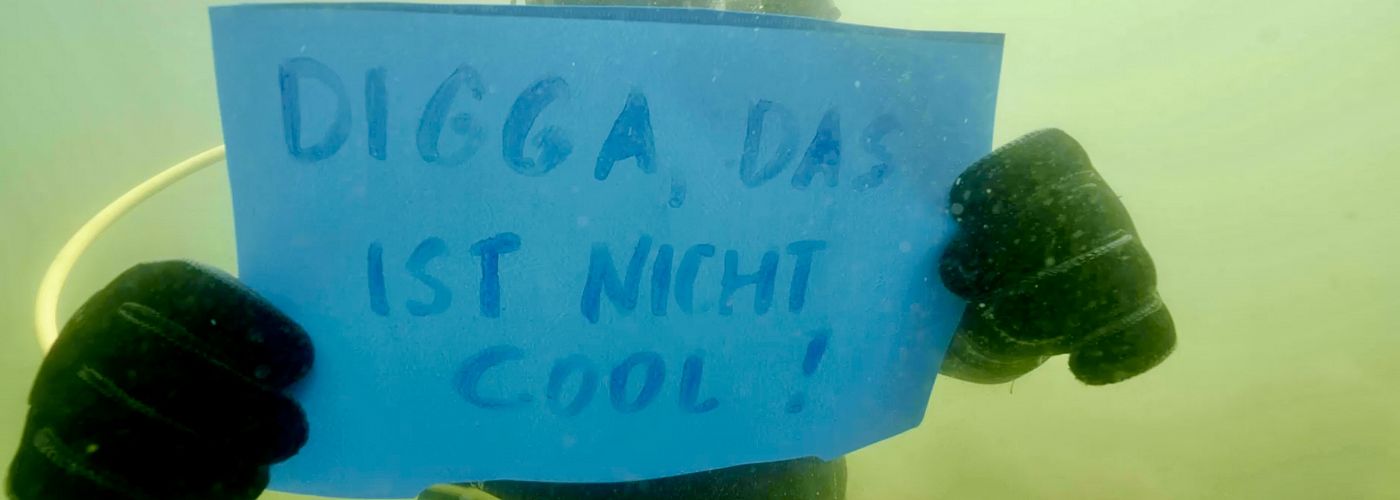 DIGGA, DAS
IST NICHT
COOL !